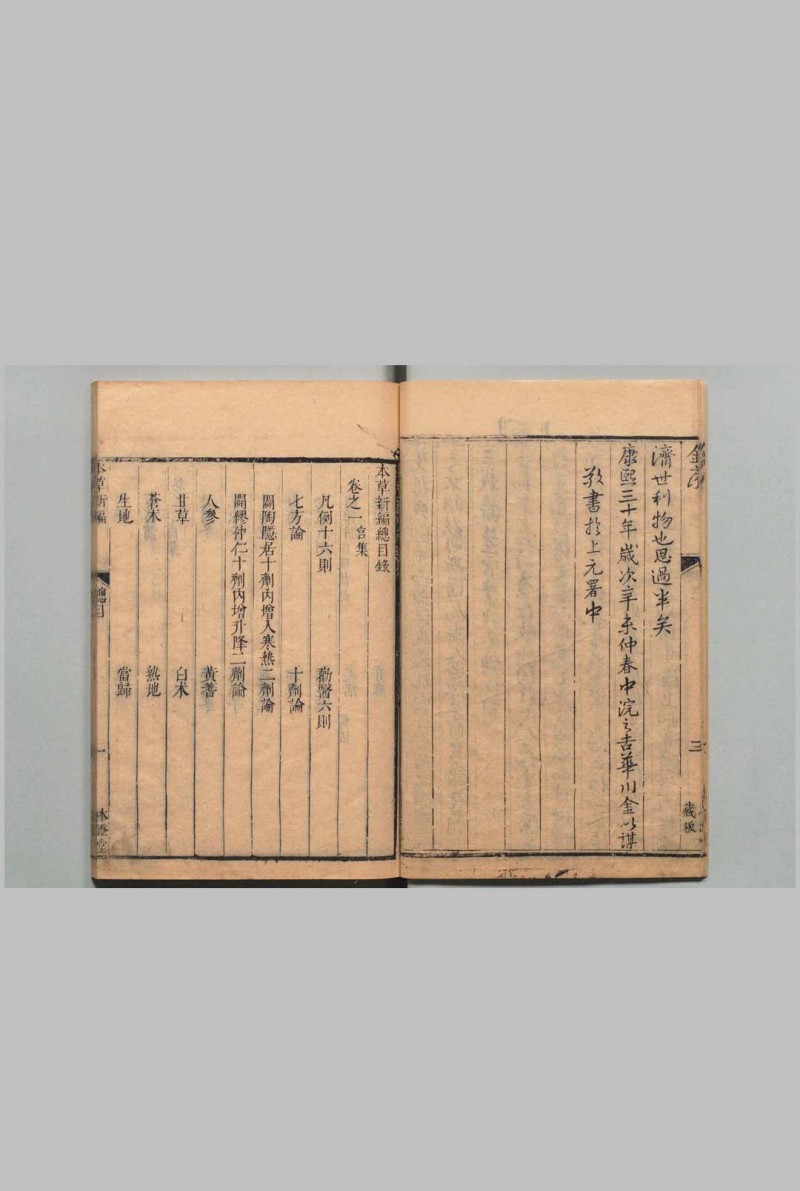 濟世利物也思過半矣
康熙三十年歲次辛未仲春中浣之吉華川金以謀
敬書於上元署中
三
藏板
本草新編總目錄
卷之一宮集
凡例十六則 勸醫六則
七方論 十劑論
闢陶隱居十劑內增入寒熱二劑論
闢繆仲仁十劑內增升降二劑論
人參 黃蓍
甘草 白朮
蒼朮 熟地
生地 當歸
本草新編
總目
一